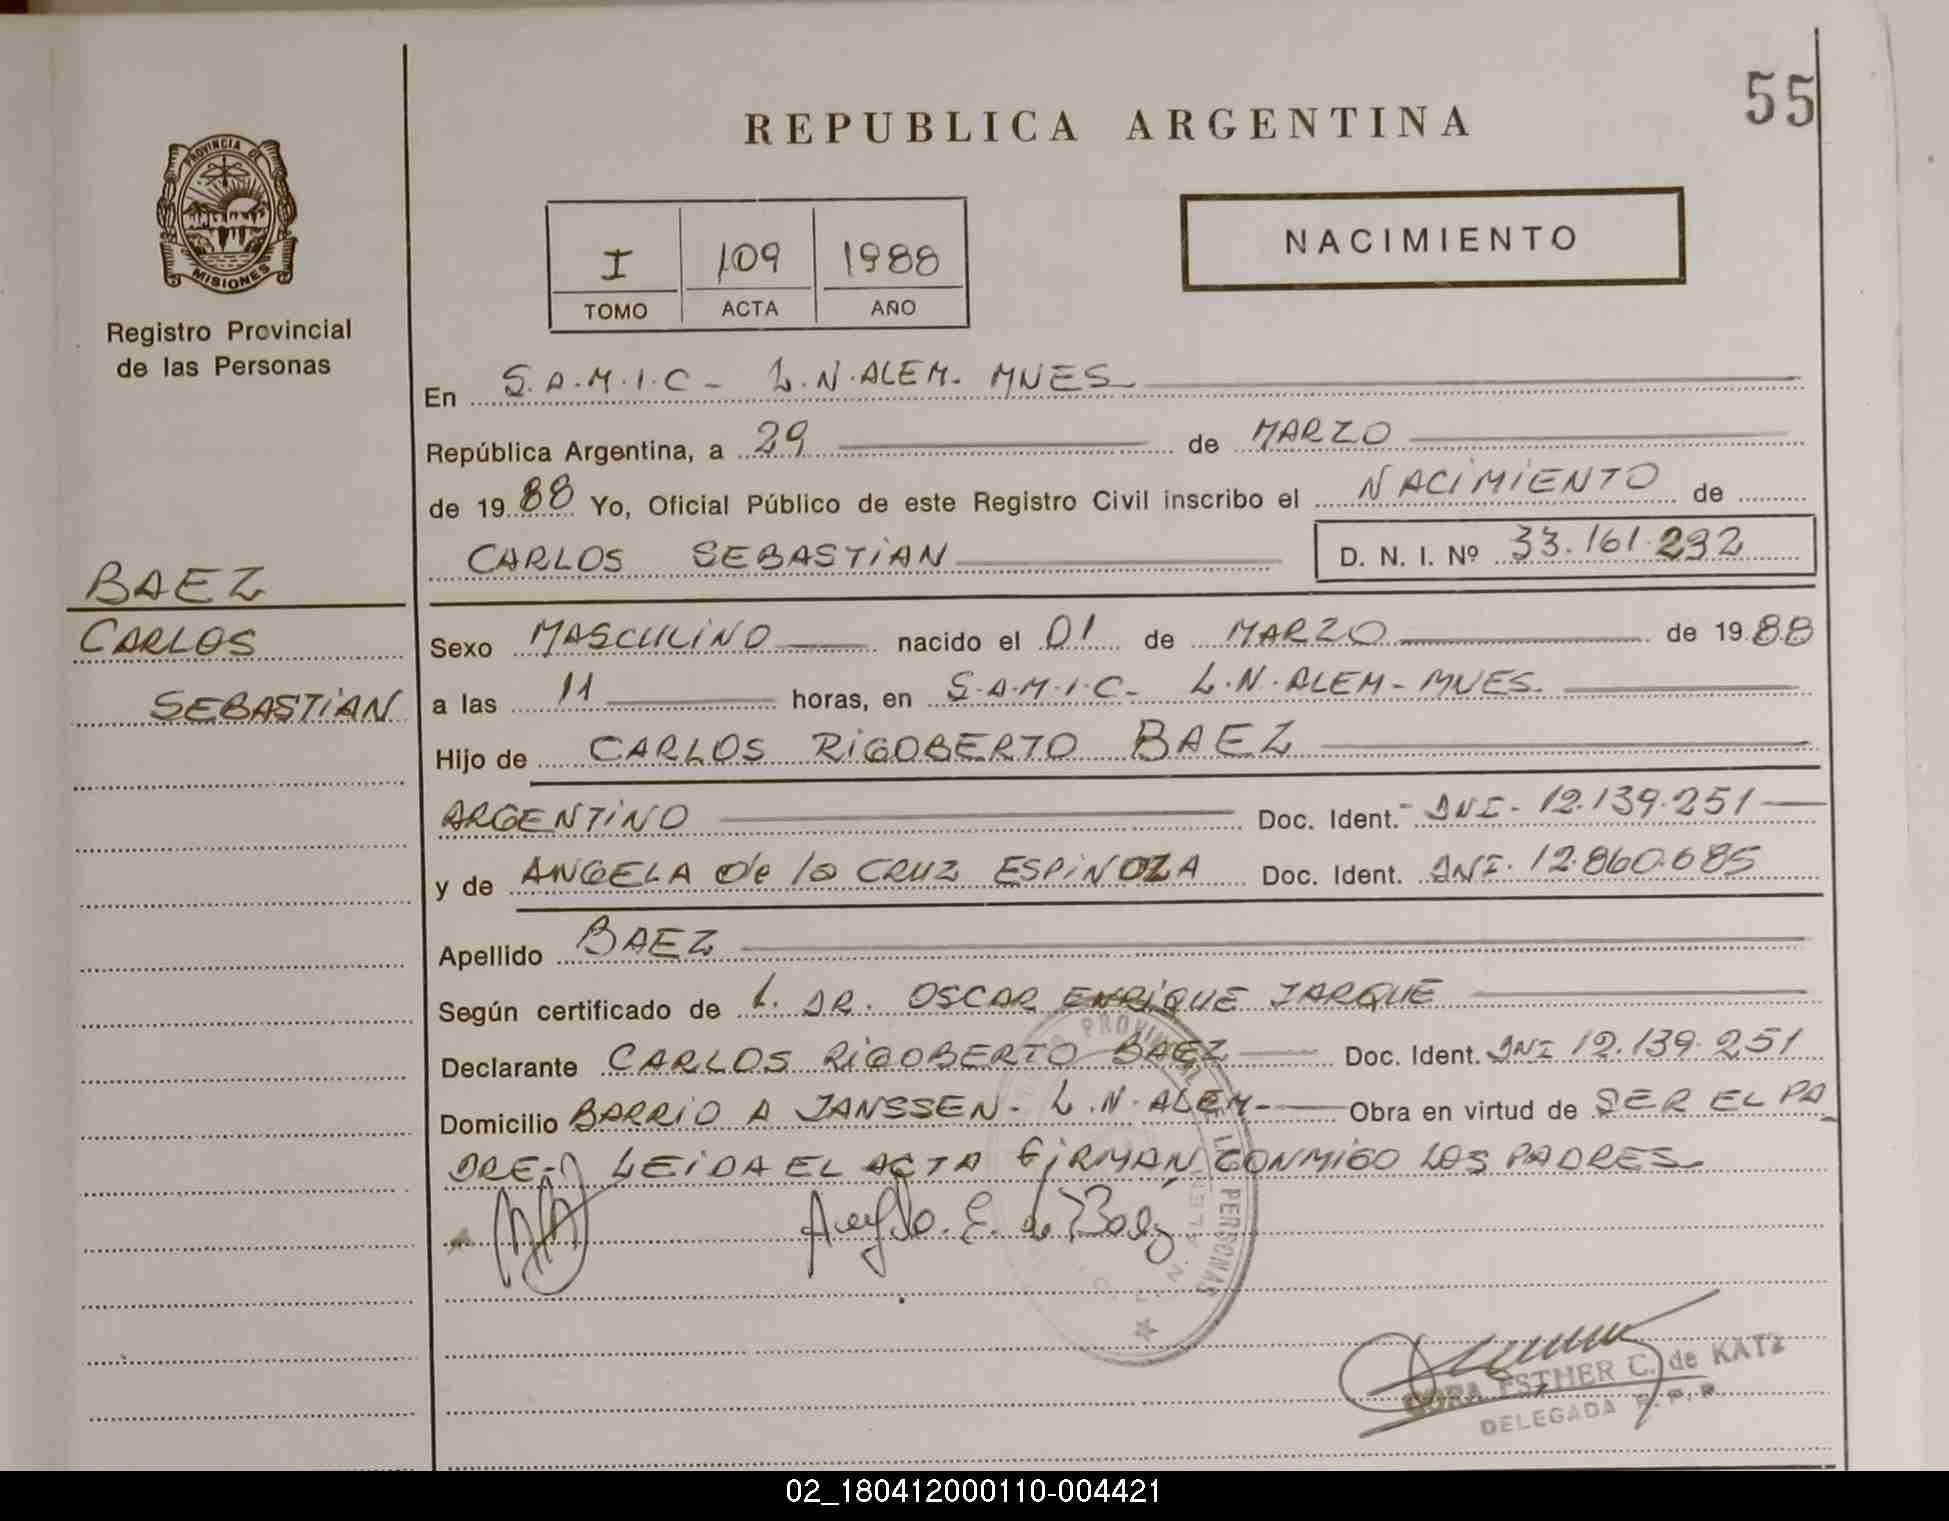 55
REPUBLICA ARGENTINA
PROVINCIA DE
MISIONES
Registro Provincial
de las Personas
I 109 1988
TOMO ACTA AÑO
NACIMIENTO
En S.A.M.I.C- L.N.ALEM. MNES
República Argentina, a 29 de MARZO
de 1988 Yo, Oficial Público de este Registro Civil inscribo el NACIMIENTO de
CARLOS SEBASTIAN D. N. I. Nº 33.161.292
BAEZ
CARLOS
SEBASTIAN
Sexo MASCULINO nacido el 01 de MARZO de 1988
a las 11 horas, en S.A.M.I.C- L.N.ALEM-MNES.
Hijo de CARLOS RIGOBERTO BAEZ
ARGENTINO Doc. Ident. DNI- 12.139.251
y de ANGELA de la CRUZ ESPINOZA Doc. Ident. DNI. 12.860.685
Apellido BAEZ
Según certificado de 1. DR. OSCAR ENRIQUE JARQUE
Declarante CARLOS RIGOBERTO BAEZ Doc. Ident. DNI 12.139.251
Domicilio BARRIO A JANSSEN- L.N.ALEM- Obra en virtud de SER EL PA
DRE- LEIDA EL ACTA FIRMAN CONMIGO LOS PADRES
PROVINCIAL DE L PERSONAS
E. de Baez
DORA ESTHER C. de KATZ
DELEGADA R.P.P.
02_180412000110-004421